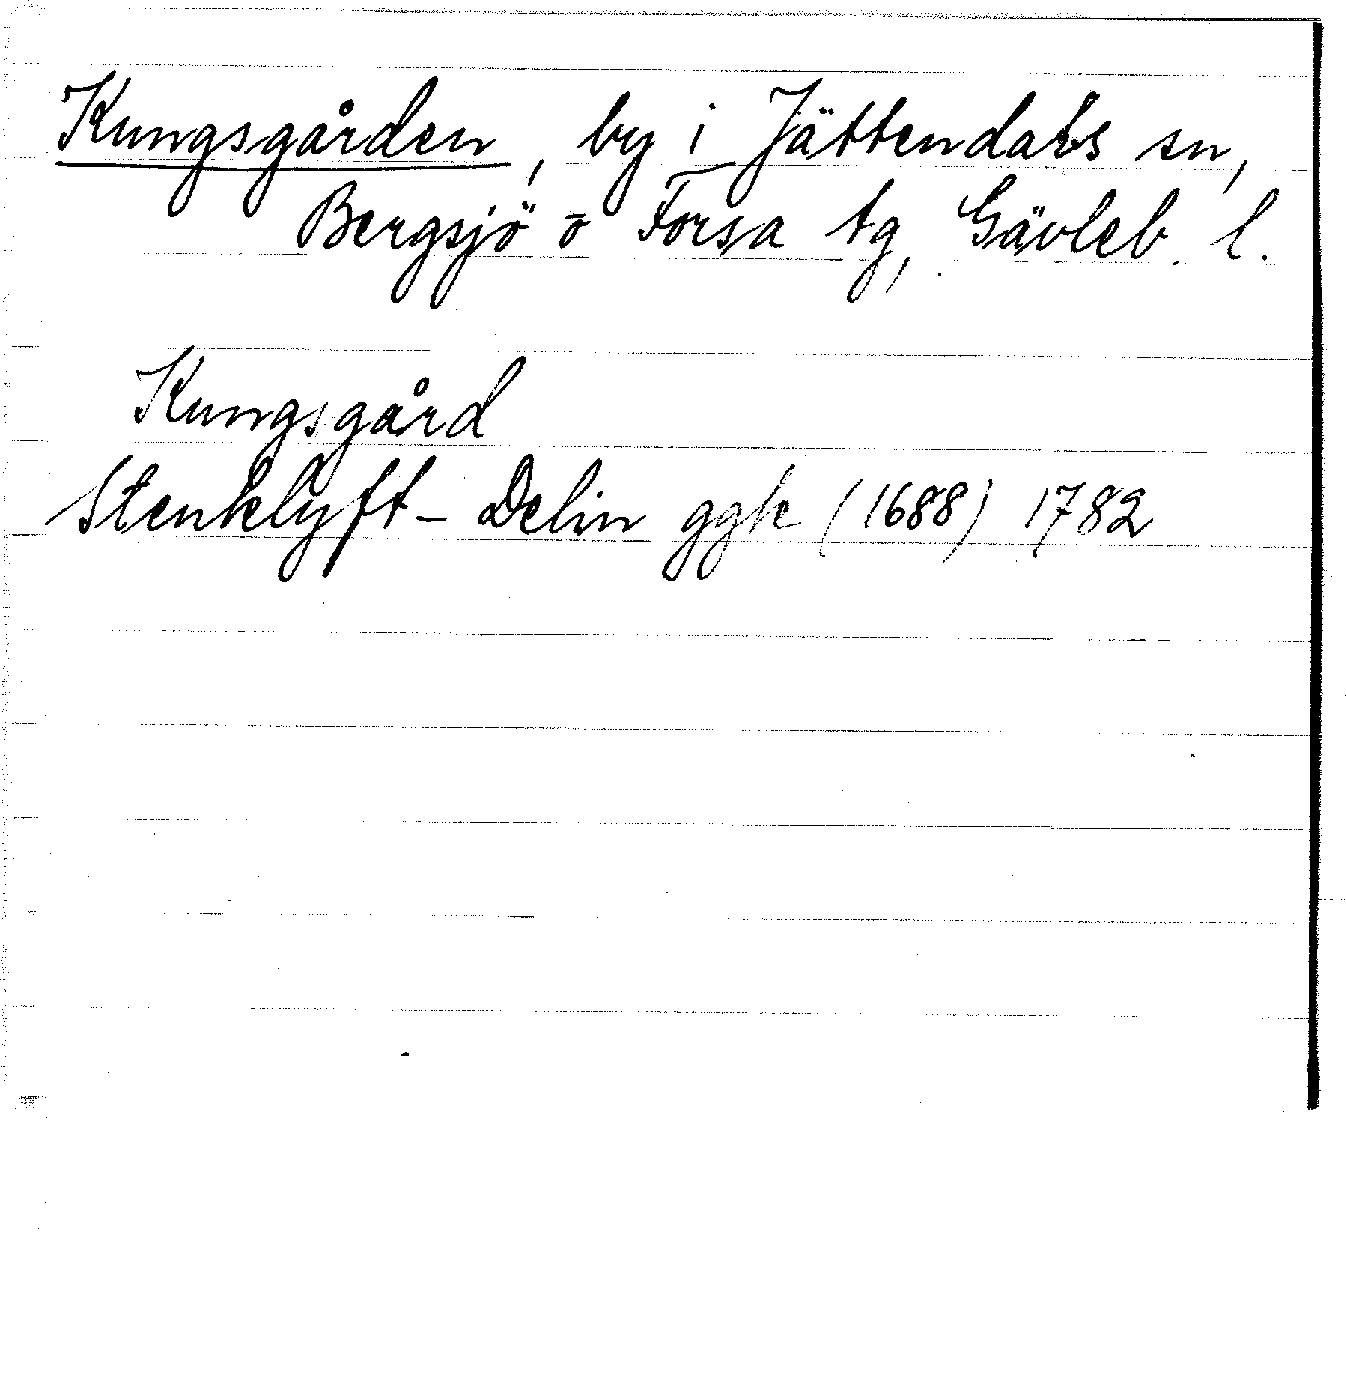 Kungsgården, by i Jättendals sn,
Bergsjö o Forsa tg, Gävleb. l.
Kungsgård
Stenklyft - Delin ggk (1688) 1782